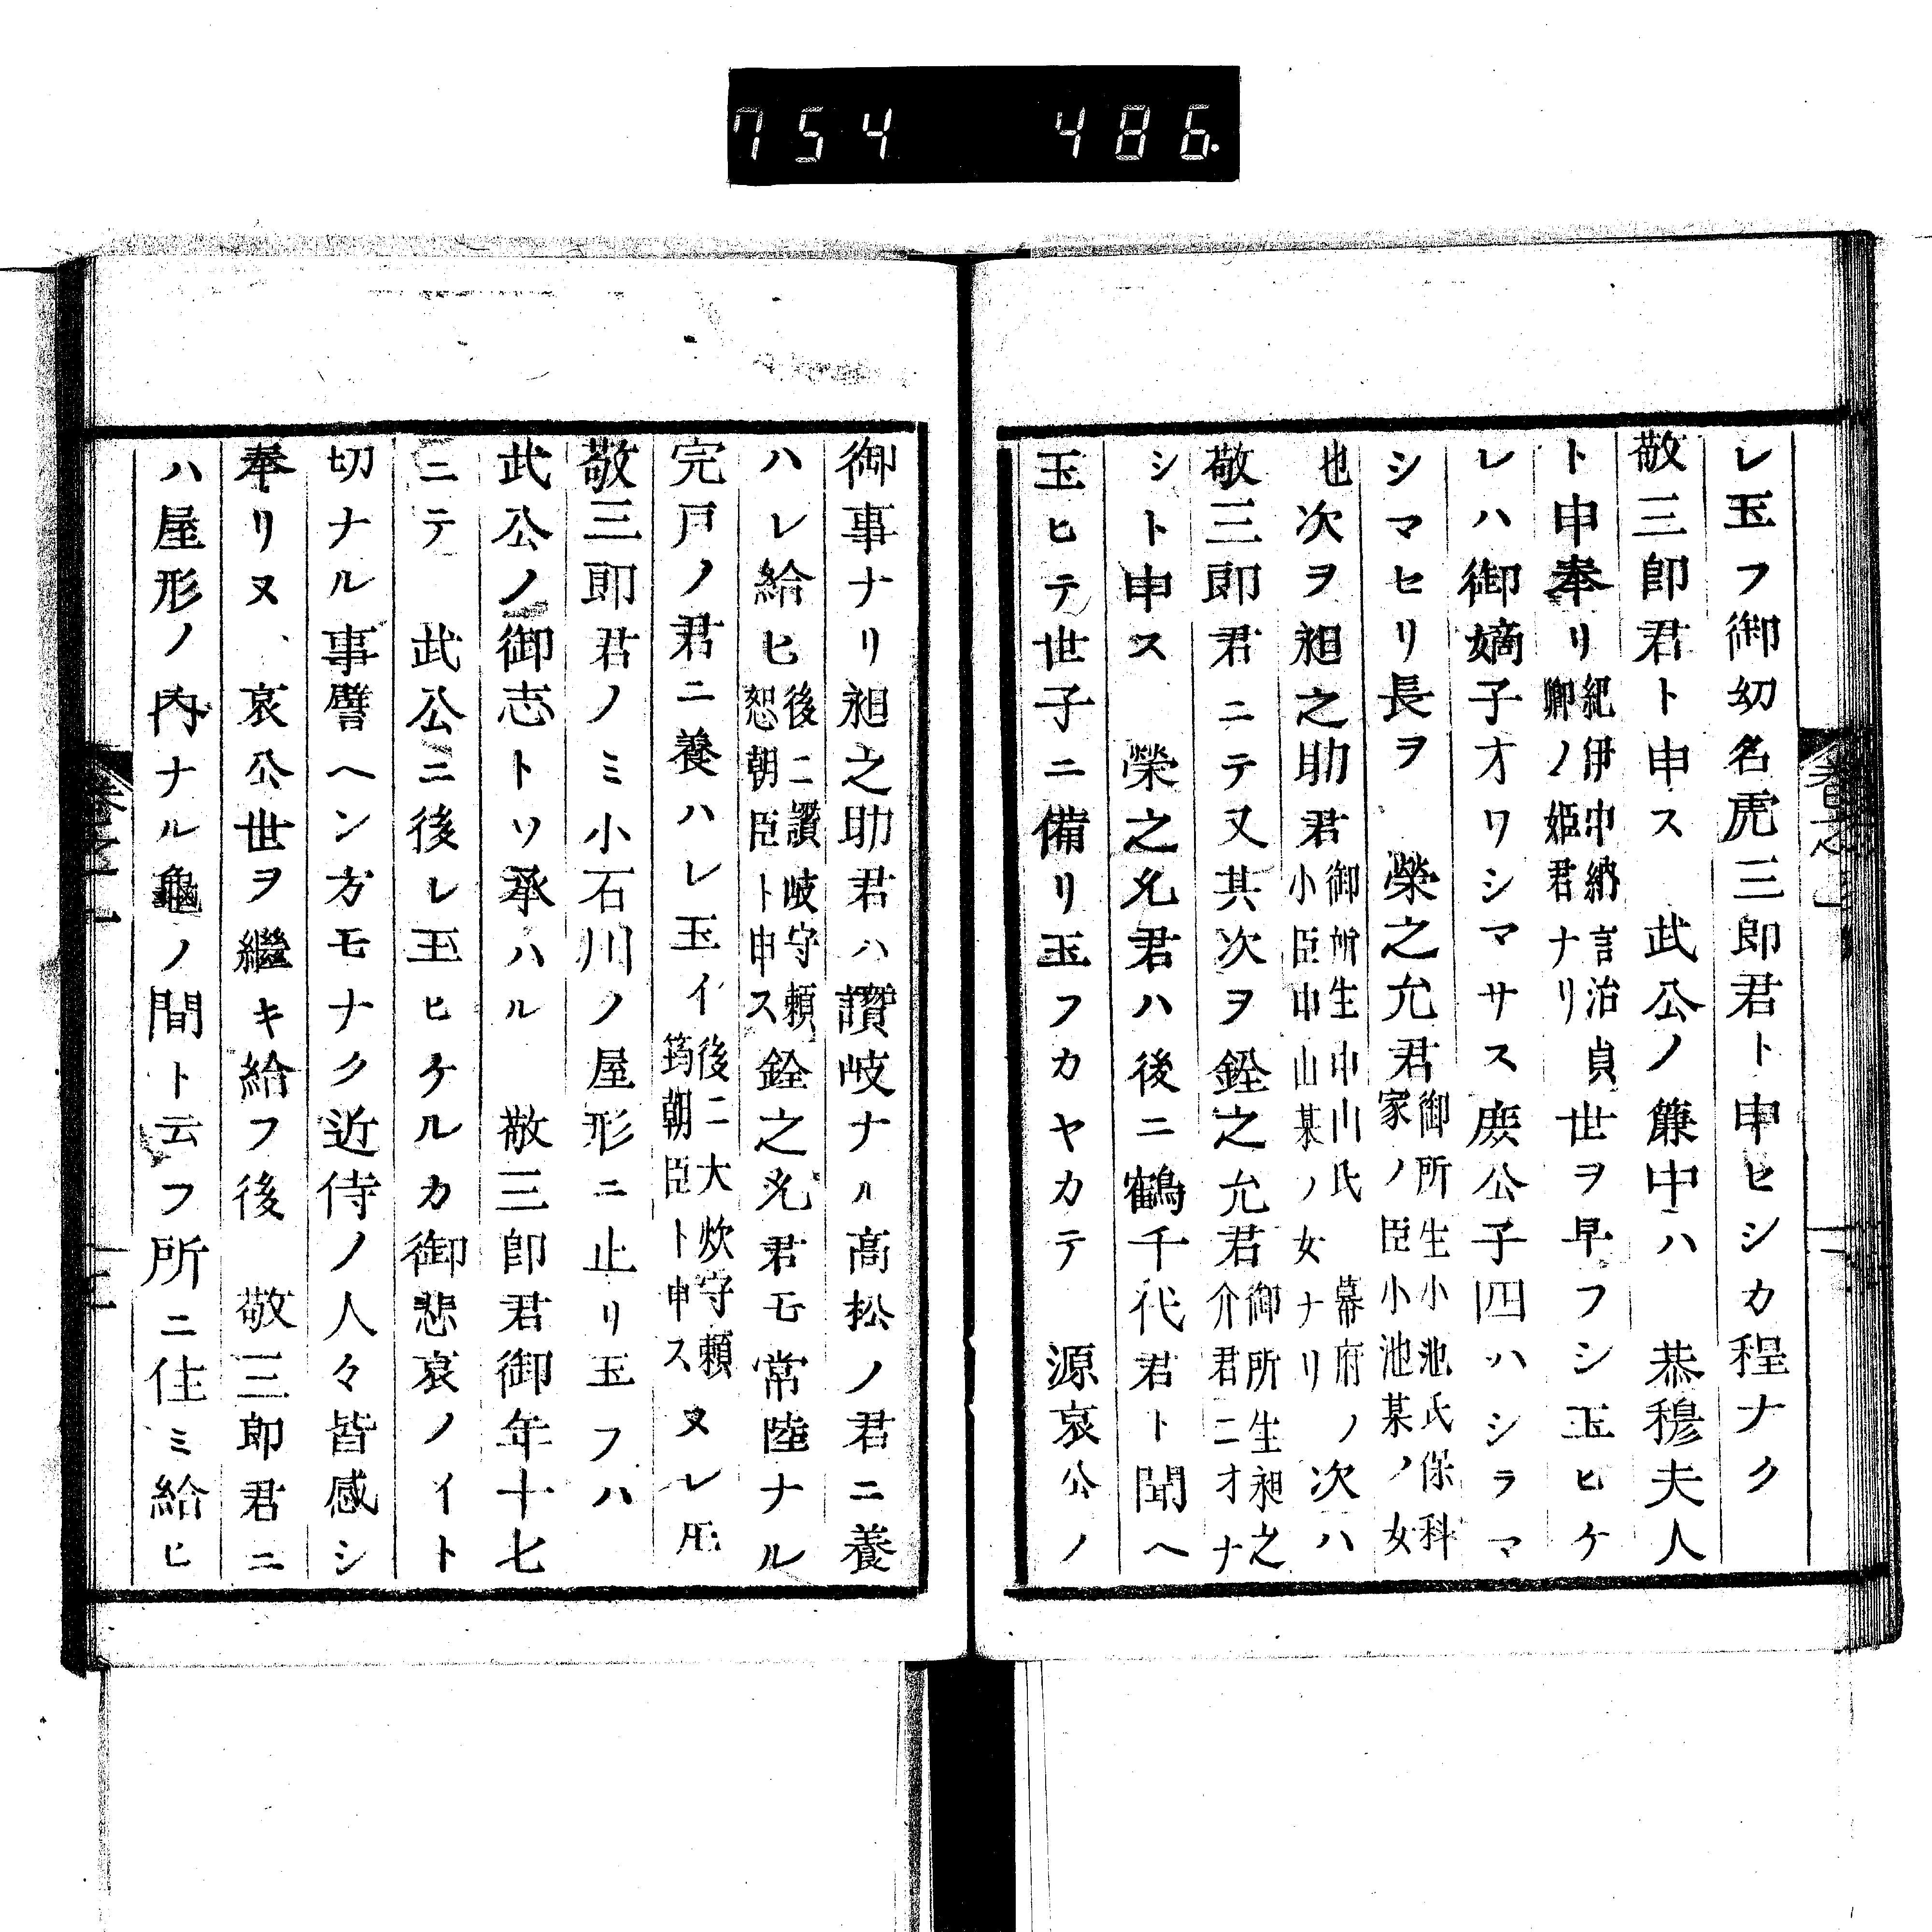 754 486.
レ玉フ御幼名虎三郎君ト申ヒシカ程ナク
敬三郎君ト申ス 武公ノ簾中ハ 恭穆夫人
ト申奉リ紀伊中納言治貞卿ノ姫君ナリ世ヲ早フシ玉ヒケ
レハ御嫡子オワシマサス庻公子四ハシラマ
シマセリ長ヲ 榮之允君御所生小池氏保科家ノ臣小池某ノ女
也次ヲ昶之助君御所生中山氏小臣中山某ノ女 幕府ノナリ次ハ
敬三郎君ニテ又其次ヲ銓之允君御所生昶之介君ニオナ
シト申ス 榮之允君ハ後ニ鶴千代君ト聞ヘ
玉ヒテ世子ニ備リ玉フカヤカテ 源哀公ノ
御事ナリ昶之助君ハ讚岐ナル高松ノ君ニ養
ハレ給ヒ後ニ讚岐守頼恕朝臣ト申ス銓之允君モ常陸ナル
完戸ノ君ニ養ハレ玉イ後ニ大炊守頼筠朝臣ト申スヌレ𪜈
敬三郎君ノミ小石川ノ屋形ニ止リ玉フハ
武公ノ御志トソ承ハル 敬三郎君御年十七
ニテ 武公ニ後レ玉ヒケルカ御悲哀ノイト
切ナル事譬ヘン方モナク近侍ノ人々皆感シ
奉リヌ、哀公世ヲ繼キ給フ後 敬三郎君ニ
ハ屋形ノ内ナル龜ノ間ト云フ所ニ住ミ給ヒ